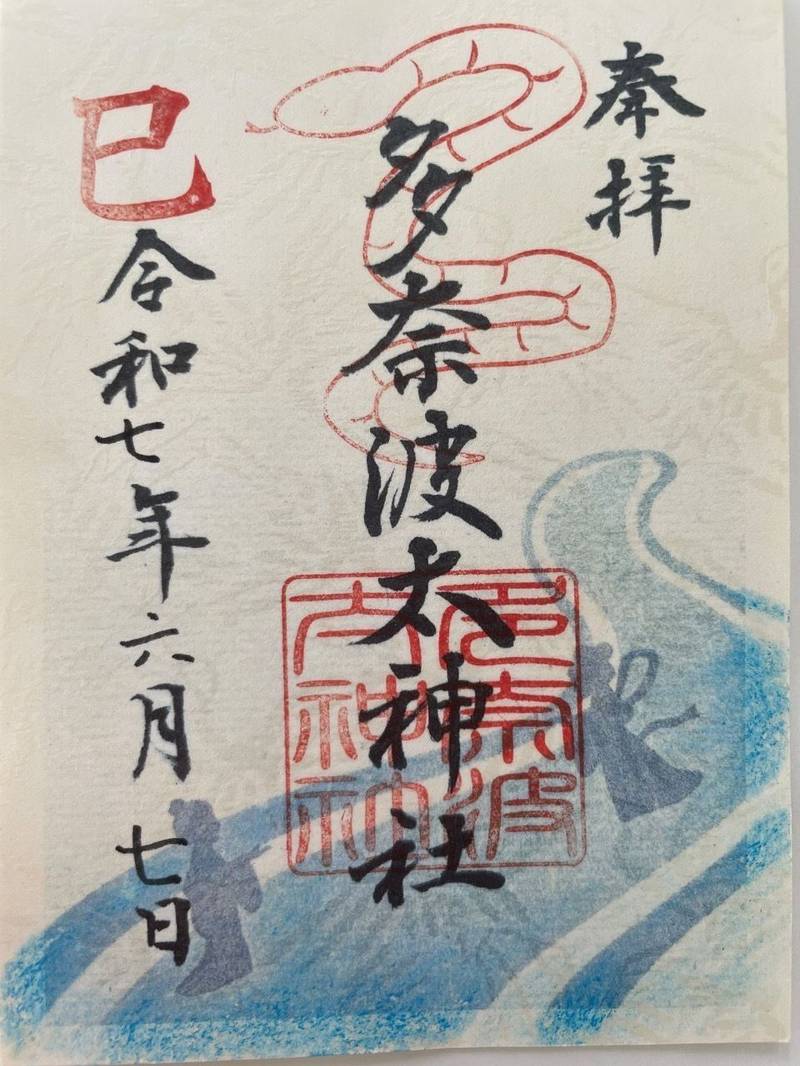 奉拝
多奈波太神社
巳
令和七年六月七日
多奈波
太神